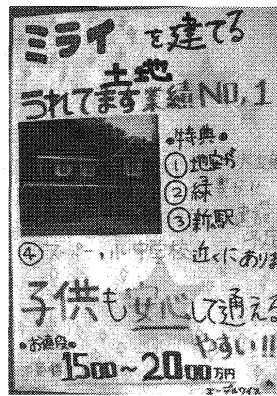 ミライを建てる
土地
うれてます業績NO,1
•特典•
①地盤
②緑
③新駅
④スーパー,小中学校近くにありま
子供も安心して通える
•お値段•やすい!!
1500～2000万円
エーデルワイス